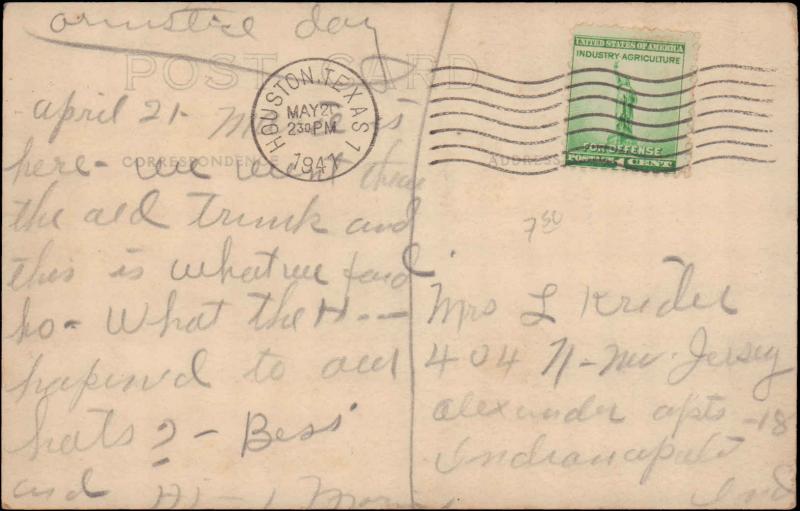 armstice day
POST CARD
HOUSTON, TEXAS 1
MAY 20
230 PM
1941
UNITED STATES OF AMERICA
INDUSTRY-AGRICULTURE
FOR DEFENSE
POSTAGE 1 CENT
CORRESPONDENCE
ADDRESS
april 21-
here- we went thru
the old trunk and
this is what we found
ho- What the H---
hapened to our
hats? - Bess
and
7 50
Mrs L Krider
404 N-New Jersey
alexander apts-18
Indianapolis
Ind